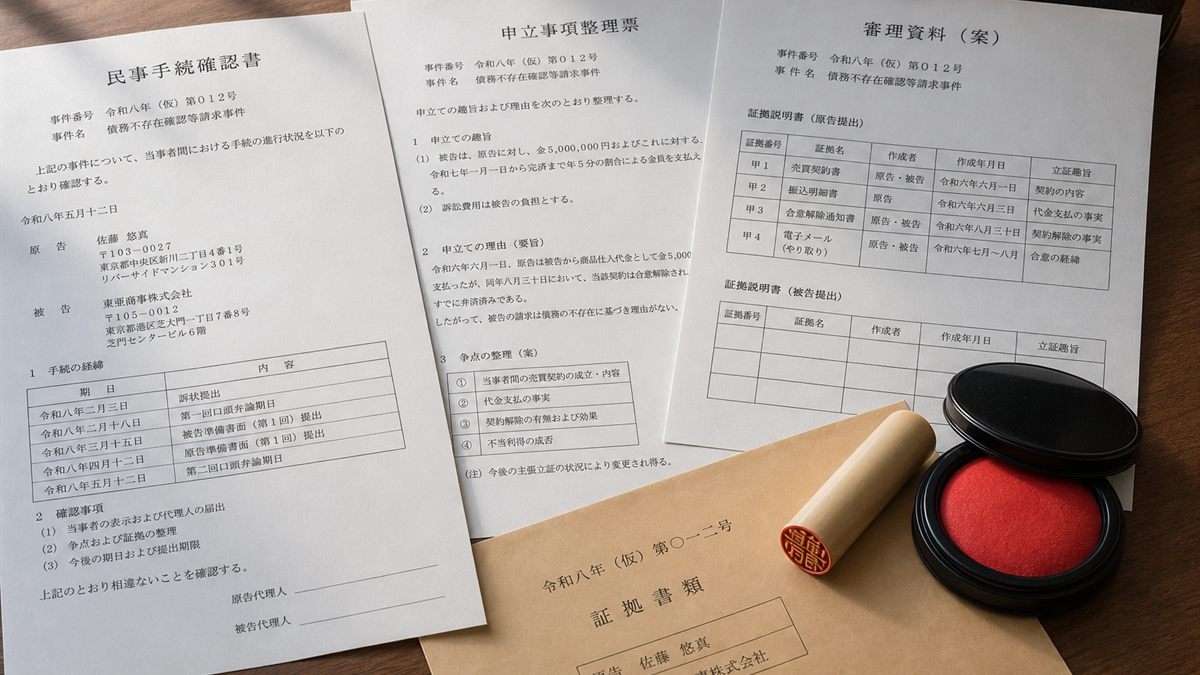 民事手続確認書
事件番号 令和八年（仮）第０１２号
事件名 債務不存在確認等請求事件
上記の事件について、当事者間における手続の進行状況を以下の
とおり確認する。
令和八年五月十二日
原告 佐藤 悠真
〒１０３－００２７
東京都中央区新川二丁目４番１号
リバーサイドマンション３０１号
被告 東亜商事株式会社
〒１０５－００１２
東京都港区芝大門一丁目７番８号
芝門センタービル６階
１ 手続の経緯
期日 内容
令和八年二月三日 訴状提出
令和八年二月十八日 第一回口頭弁論期日
令和八年三月十五日 被告準備書面（第１回）提出
令和八年四月十二日 原告準備書面（第１回）提出
令和八年五月十二日 第二回口頭弁論期日
２ 確認事項
(1) 当事者の表示および代理人の届出
(2) 争点および証拠の整理
(3) 今後の期日および提出期限
上記のとおり相違ないことを確認する。
原告代理人
被告代理人
申立事項整理票
事件番号 令和八年（仮）第０１２号
事件名 債務不存在確認等請求事件
申立ての趣旨および理由を次のとおり整理する。
１ 申立ての趣旨
(1) 被告は、原告に対し、金５,０００,０００円およびこれに対する、
令和七年一月一日から完済まで年５分の割合による金員を支払え
る。
(2) 訴訟費用は被告の負担とする。
２ 申立ての理由（要旨）
令和六年六月一日、原告は被告から商品仕入代金として金５,０００
支払ったが、同年八月三十日において、当該契約は合意解除され、
すでに弁済済みである。
したがって、被告の請求は債務の不存在に基づき理由がない。
３ 争点の整理（案）
① 当事者間の売買契約の成立・内容
② 代金支払の事実
③ 契約解除の有無および効果
④ 不当利得の成否
（注）今後の主張立証の状況により変更され得る。
審理資料（案）
事件番号 令和八年（仮）第０１２号
事件名 債務不存在確認等請求事件
証拠説明書（原告提出）
証拠番号 証拠名 作成者 作成年月日 立証趣旨
甲１ 売買契約書 原告・被告 令和六年六月一日 契約の内容
甲２ 振込明細書 原告 令和六年六月三日 代金支払の事実
甲３ 合意解除通知書 原告・被告 令和六年八月三十日 契約解除の事実
甲４ 電子メール（やり取り） 原告・被告 令和六年七月～八月 合意の経緯
証拠説明書（被告提出）
証拠番号 証拠名 作成者 作成年月日 立証趣旨
令和八年（仮）第〇一二号
証拠書類
原告 佐藤 悠真
株式会社